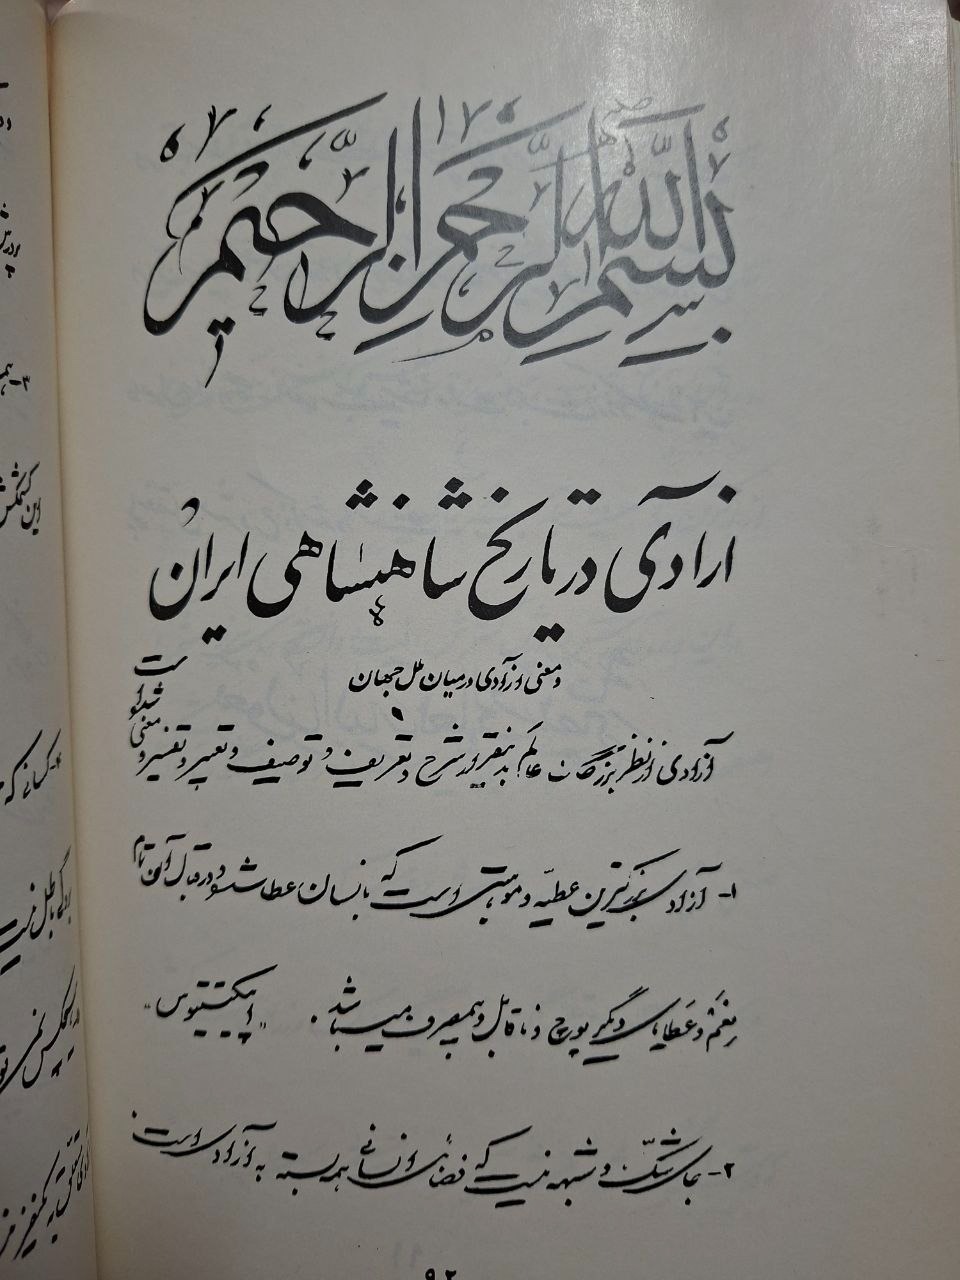 بسم الله الرحمن الرحیم
آزادی در تاریخ شاهنشاهی ایران
و معنی آزادی در میان ملل جهان
آزادی از نظر بزرگان عالم بدینقرار شرح و تعریف و توصیف و تعبیر و تفسیر و معنی شده است
۱- آزادی بزرگترین عطیّه و موهبتی است که بانسان عطا شده و در قبال آن تمام
نِعَمْ و عَطایای دیگر پوچ و ناقابل و بیمصرف میباشد. «اپیکتتوس»
۲- جای شکّ و شبهه نیست که فضائل انسانی همه بسته به آزادی است
۹۲
۳-
این
۴- کسانی که